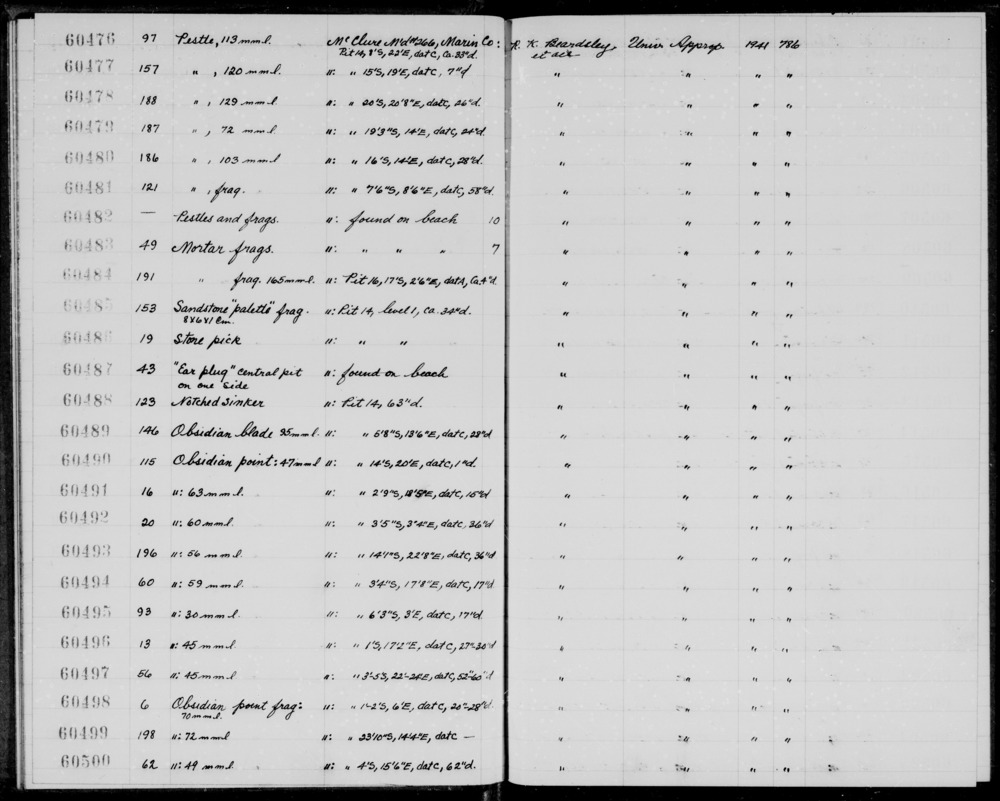 60476 97 Pestle, 113 mm l. McClure Md #266, Marin Co: R. K. Beardsley Univ. Approp. 1941 786
Pit 14, 8'S, 22'E, dat C, Ca. 33"d. et al
60477 157 " , 120 mm l. ": " 15'S, 19'E, dat C, 7"d " " " "
60478 188 " , 129 mm l. ": " 20'S, 20'8"E, dat C, 26"d. " " " "
60479 187 " , 72 mm l. ": " 19'3"S, 14'E, dat C, 24"d. " " " "
60480 186 " , 103 mm l ": " 16'S, 14'E, dat C, 28"d. " " " "
60481 121 " , frag. ": " 7'6"S, 8'6"E, dat C, 58"d " " " "
60482 — Pestles and frags. ": found on beach 10 " " " "
60483 49 Mortar frags. ": " " " 7 " " " "
60484 191 " frag. 165 mm l. ": Pit 16, 17'S, 2'6"E, dat A, Ca. 4"d. " " " "
60485 153 Sandstone "palette" frag. ": Pit 14, level 1, ca. 34"d. " " " "
8x6x1 cm.
60486 19 Stone pick ": " " " " " "
60487 43 "Ear plug" central pit ": found on beach " " " "
on one side
60488 123 Notched sinker ": Pit 14, 63"d. " " " "
60489 146 Obsidian blade 35 mm l. ": " 5'8"S, 13'6"E, dat C, 28"d " " " "
60490 115 Obsidian point: 47 mm l ": " 14'S, 20'E, dat C, 1"d. " " " "
60491 16 ": 63 mm l. ": " 2'9"S, E, dat C, 15"d " " " "
60492 20 ": 60 mm l. ": " 3'5"S, 3'4"E, dat C, 36"d " " " "
60493 196 ": 56 mm l. ": " 14'1"S, 22'8"E, dat C, 36"d " " " "
60494 60 ": 59 mm l. ": " 3'4"S, 17'8"E, dat C, 17"d " " " "
60495 93 ": 30 mm l. ": " 6'3"S, 3'E, dat C, 17"d. " " " "
60496 13 ": 45 mm l. ": " 1'S, 17'2"E, dat C, 27"-30"d " " " "
60497 56 ": 45 mm l ": " 3'-5'S, 22'-24'E, dat C, 52"-60"d " " " "
60498 6 Obsidian point frag: ": " 1'-2'S, 6'E, dat C, 20"-28"d. " " " "
70 mm l.
60499 198 ": 72 mm l ": " 23'10"S, 14'4"E, dat C — " " " "
60500 62 ": 49 mm l. ": " 4'S, 15'6"E, dat C, 62"d. " " " "